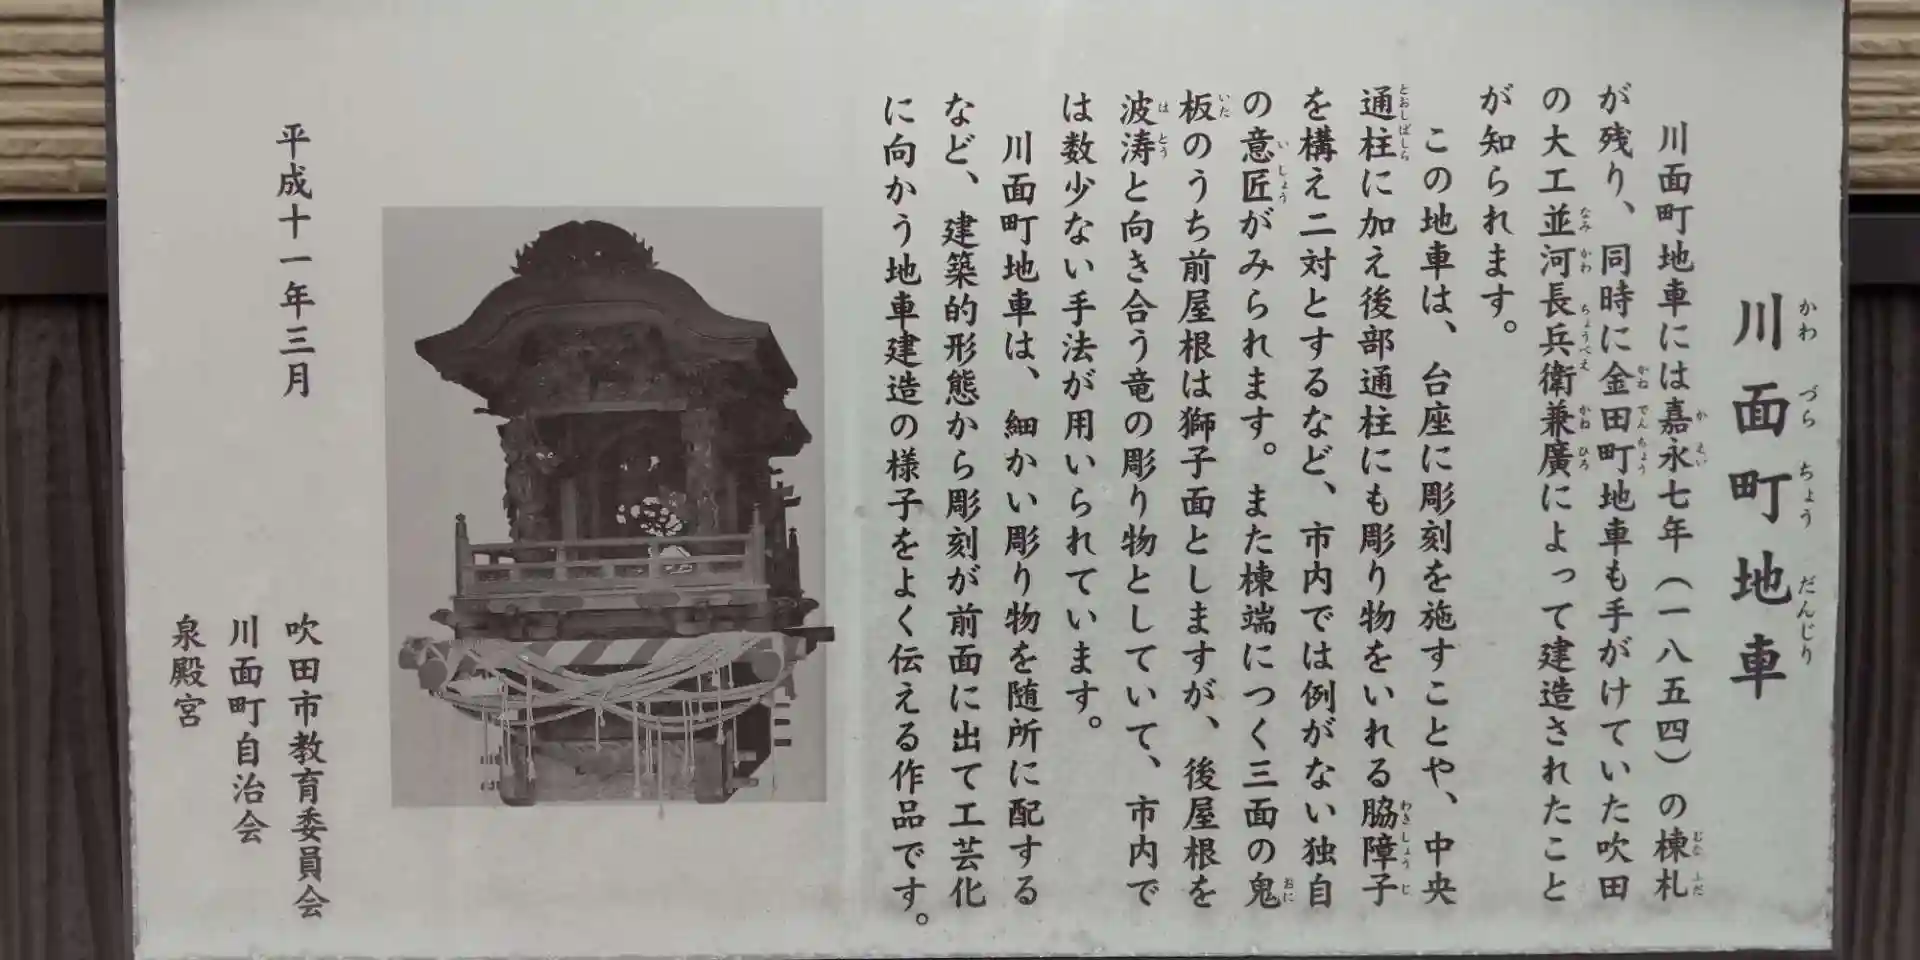 川面町地車
川面町地車には嘉永七年（一八五四）の棟札
が残り、同時に金田町地車も手がけていた吹田
の大工並河長兵衛兼廣によって建造されたこと
が知られます。
この地車は、台座に彫刻を施すことや、中央
通柱に加え後部通柱にも彫り物をいれる脇障子
を構え二対とするなど、市内では例がない独自
の意匠がみられます。また棟端につく三面の鬼
板のうち前屋根は獅子面としますが、後屋根を
波涛と向き合う竜の彫り物としていて、市内で
は数少ない手法が用いられています。
川面町地車は、細かい彫り物を随所に配する
など、建築的形態から彫刻が前面に出て工芸化
に向かう地車建造の様子をよく伝える作品です。
平成十一年三月
吹田市教育委員会
川面町自治会
泉殿宮